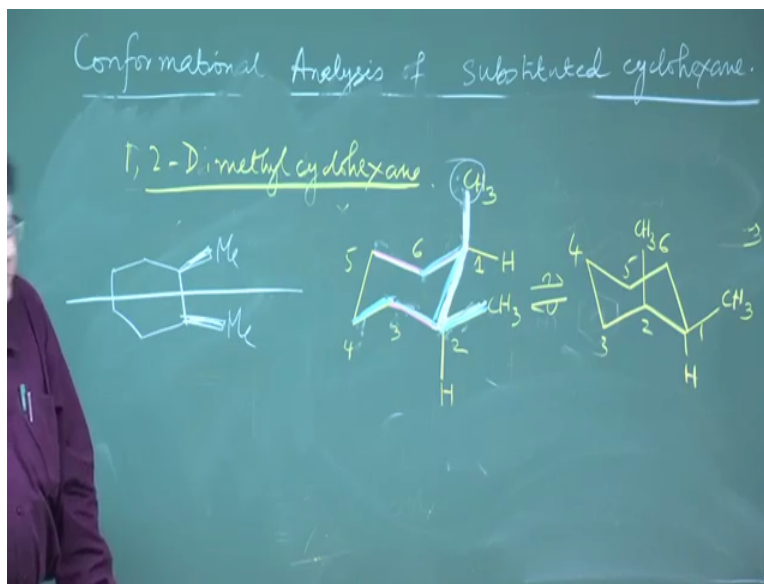 Conformational Analysis of substituted cyclohexane.
1, 2-Dimethylcyclohexane.
Me
Me
CH3
5
6
1
H
CH3
4
3
2
H
CH3
4
6
5
CH3
3
2
1
H